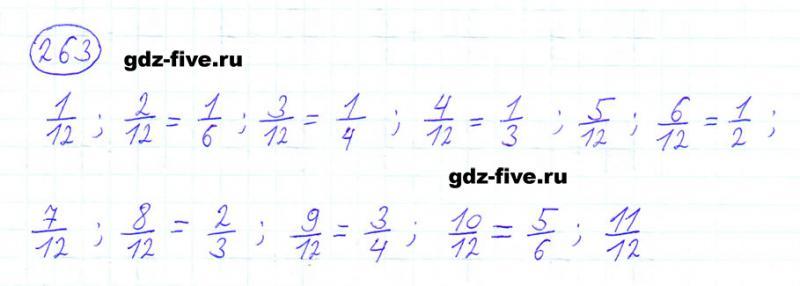 263
gdz-five.ru
1/12 ; 2/12 = 1/6 ; 3/12 = 1/4 ; 4/12 = 1/3 ; 5/12 ; 6/12 = 1/2 ;
gdz-five.ru
7/12 ; 8/12 = 2/3 ; 9/12 = 3/4 ; 10/12 = 5/6 ; 11/12